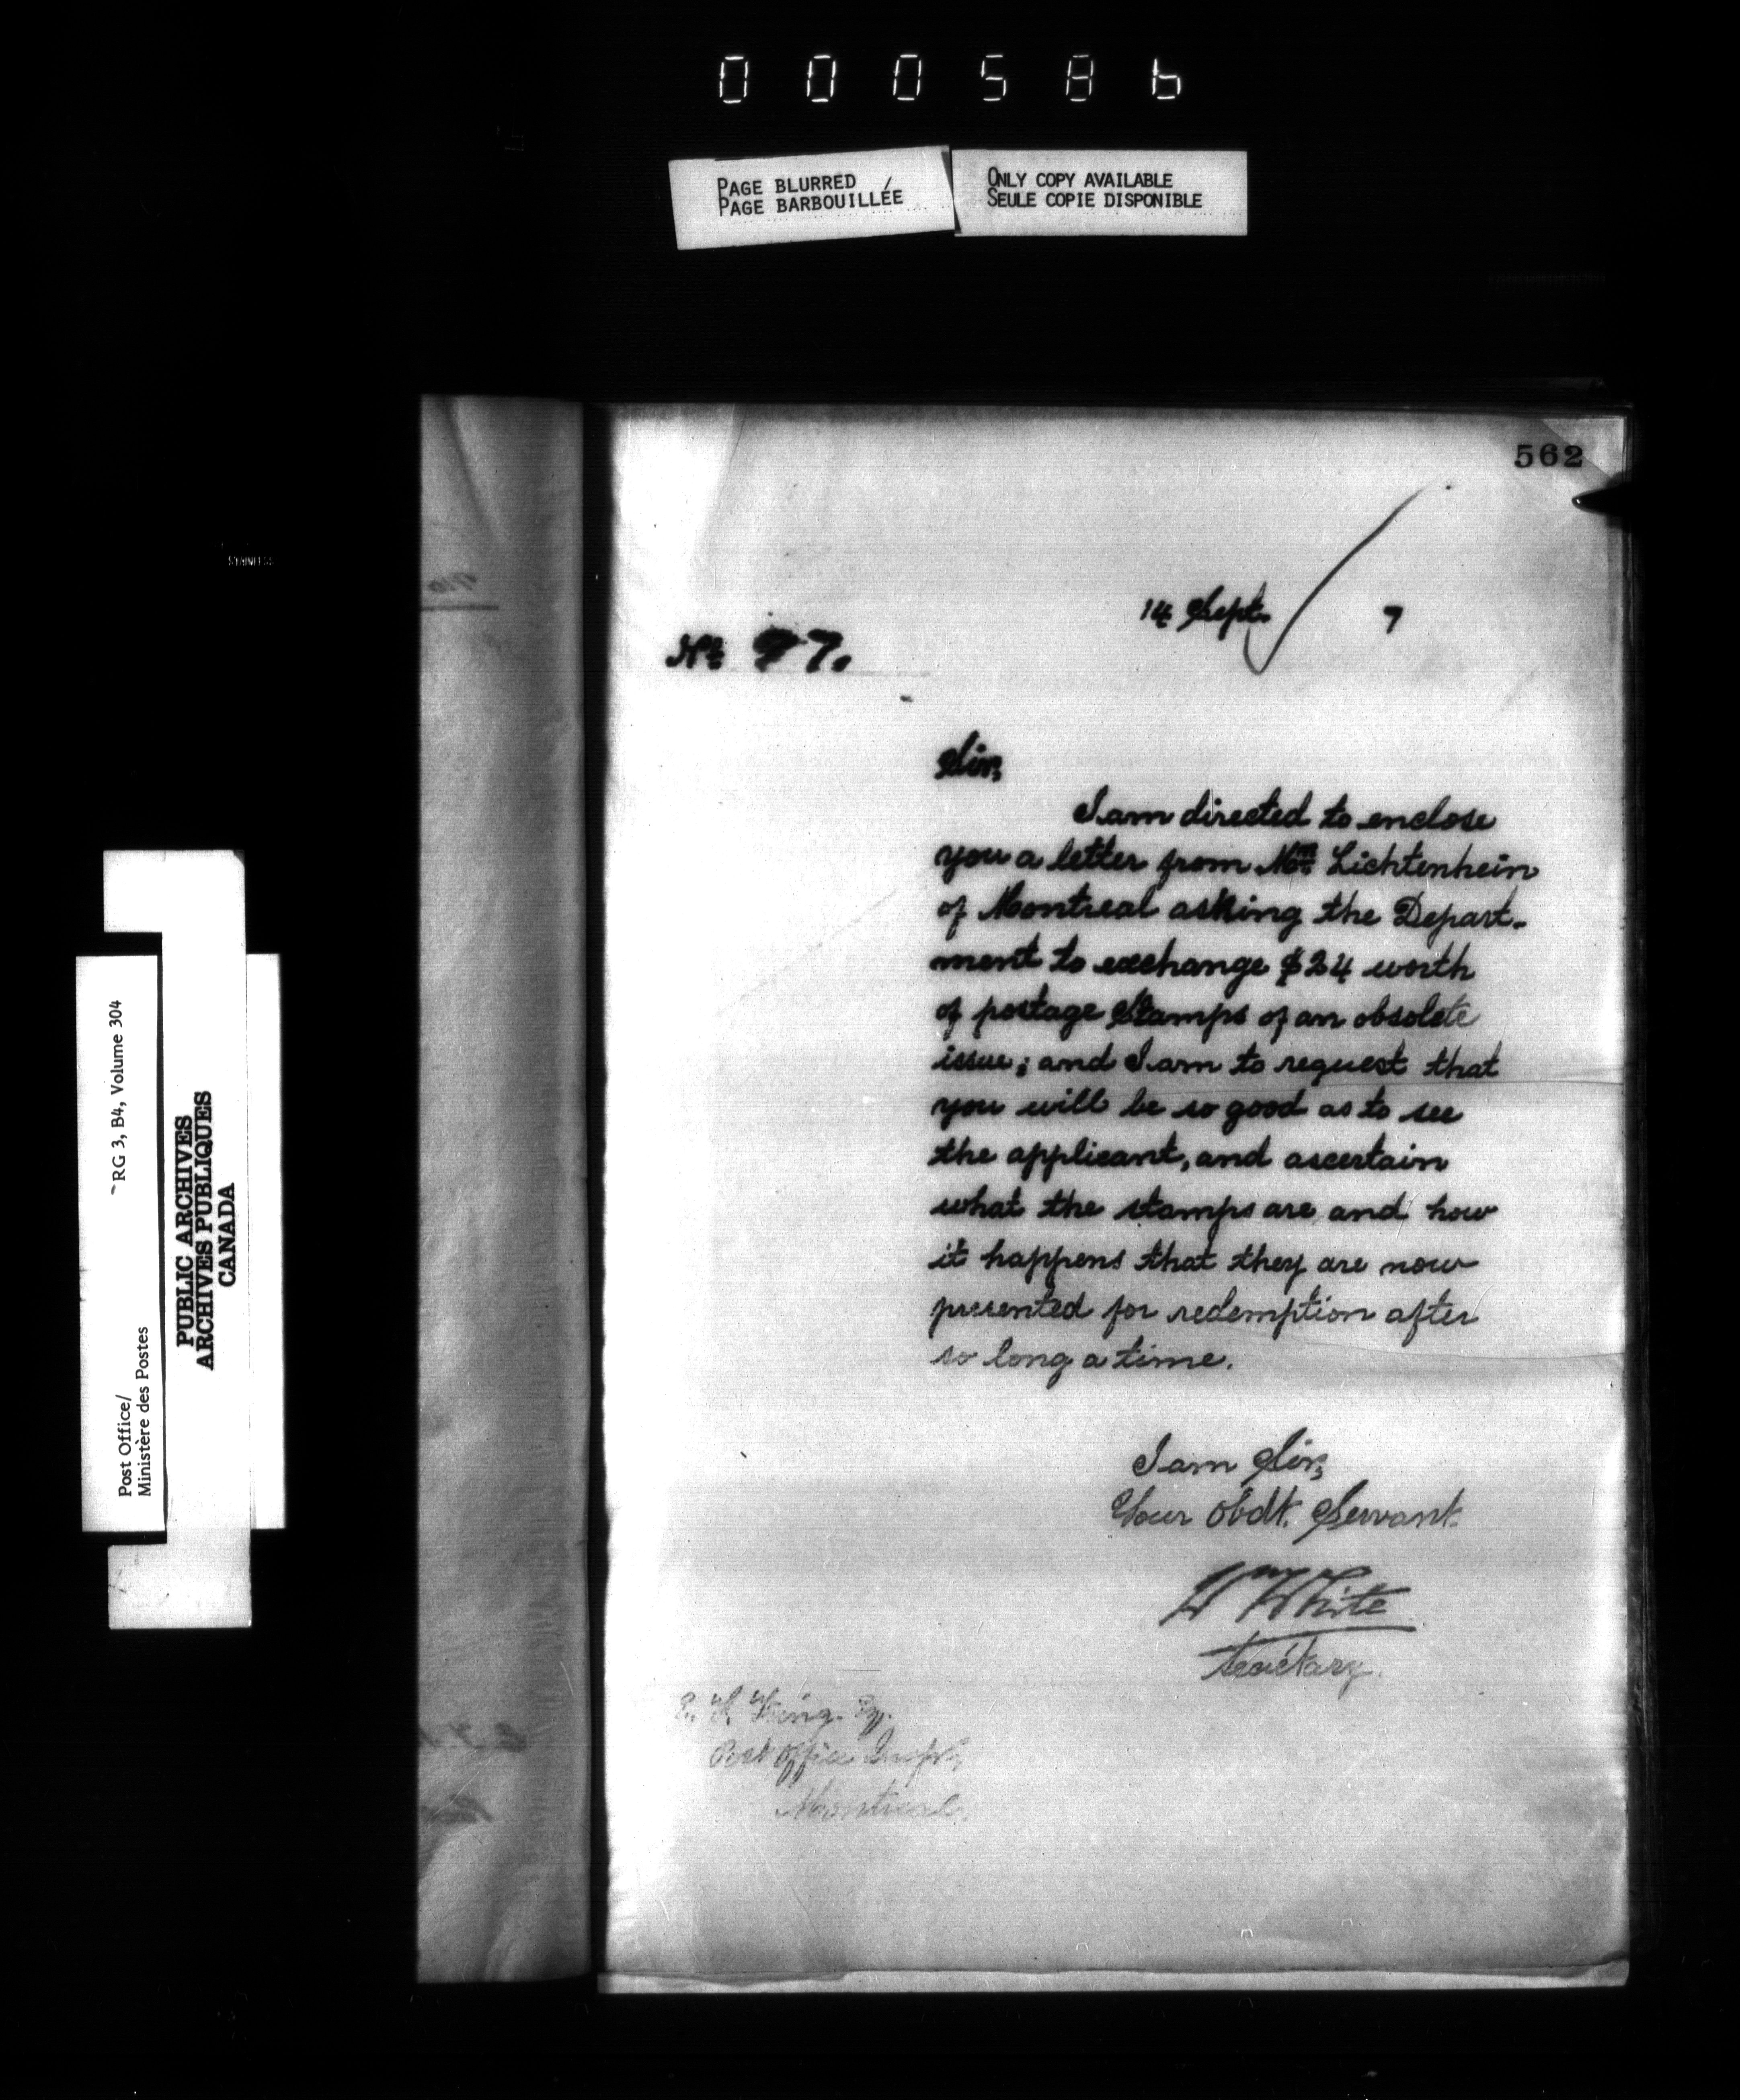 000586
PAGE BLURRED
PAGE BARBOUILLÉE
ONLY COPY AVAILABLE
SEULE COPIE DISPONIBLE
562
14 Sept. 7
No. 97.
Sir,
I am directed to enclose
you a letter from Mr. Lichtenhein
of Montreal asking the Depart-
ment to exchange $24 worth
of postage Stamps of an obsolete
issue; and I am to request that
you will be so good as to see
the applicant, and ascertain
what the stamps are and how
it happens that they are now
presented for redemption after
so long a time.
I am Sir,
Your Obdt. Servant
Wm White
Secretary.
King Esq.
Post Office Inspr,
Montreal.
Post Office/
Ministère des Postes
RG 3, B4, Volume 304
PUBLIC ARCHIVES
ARCHIVES PUBLIQUES
CANADA